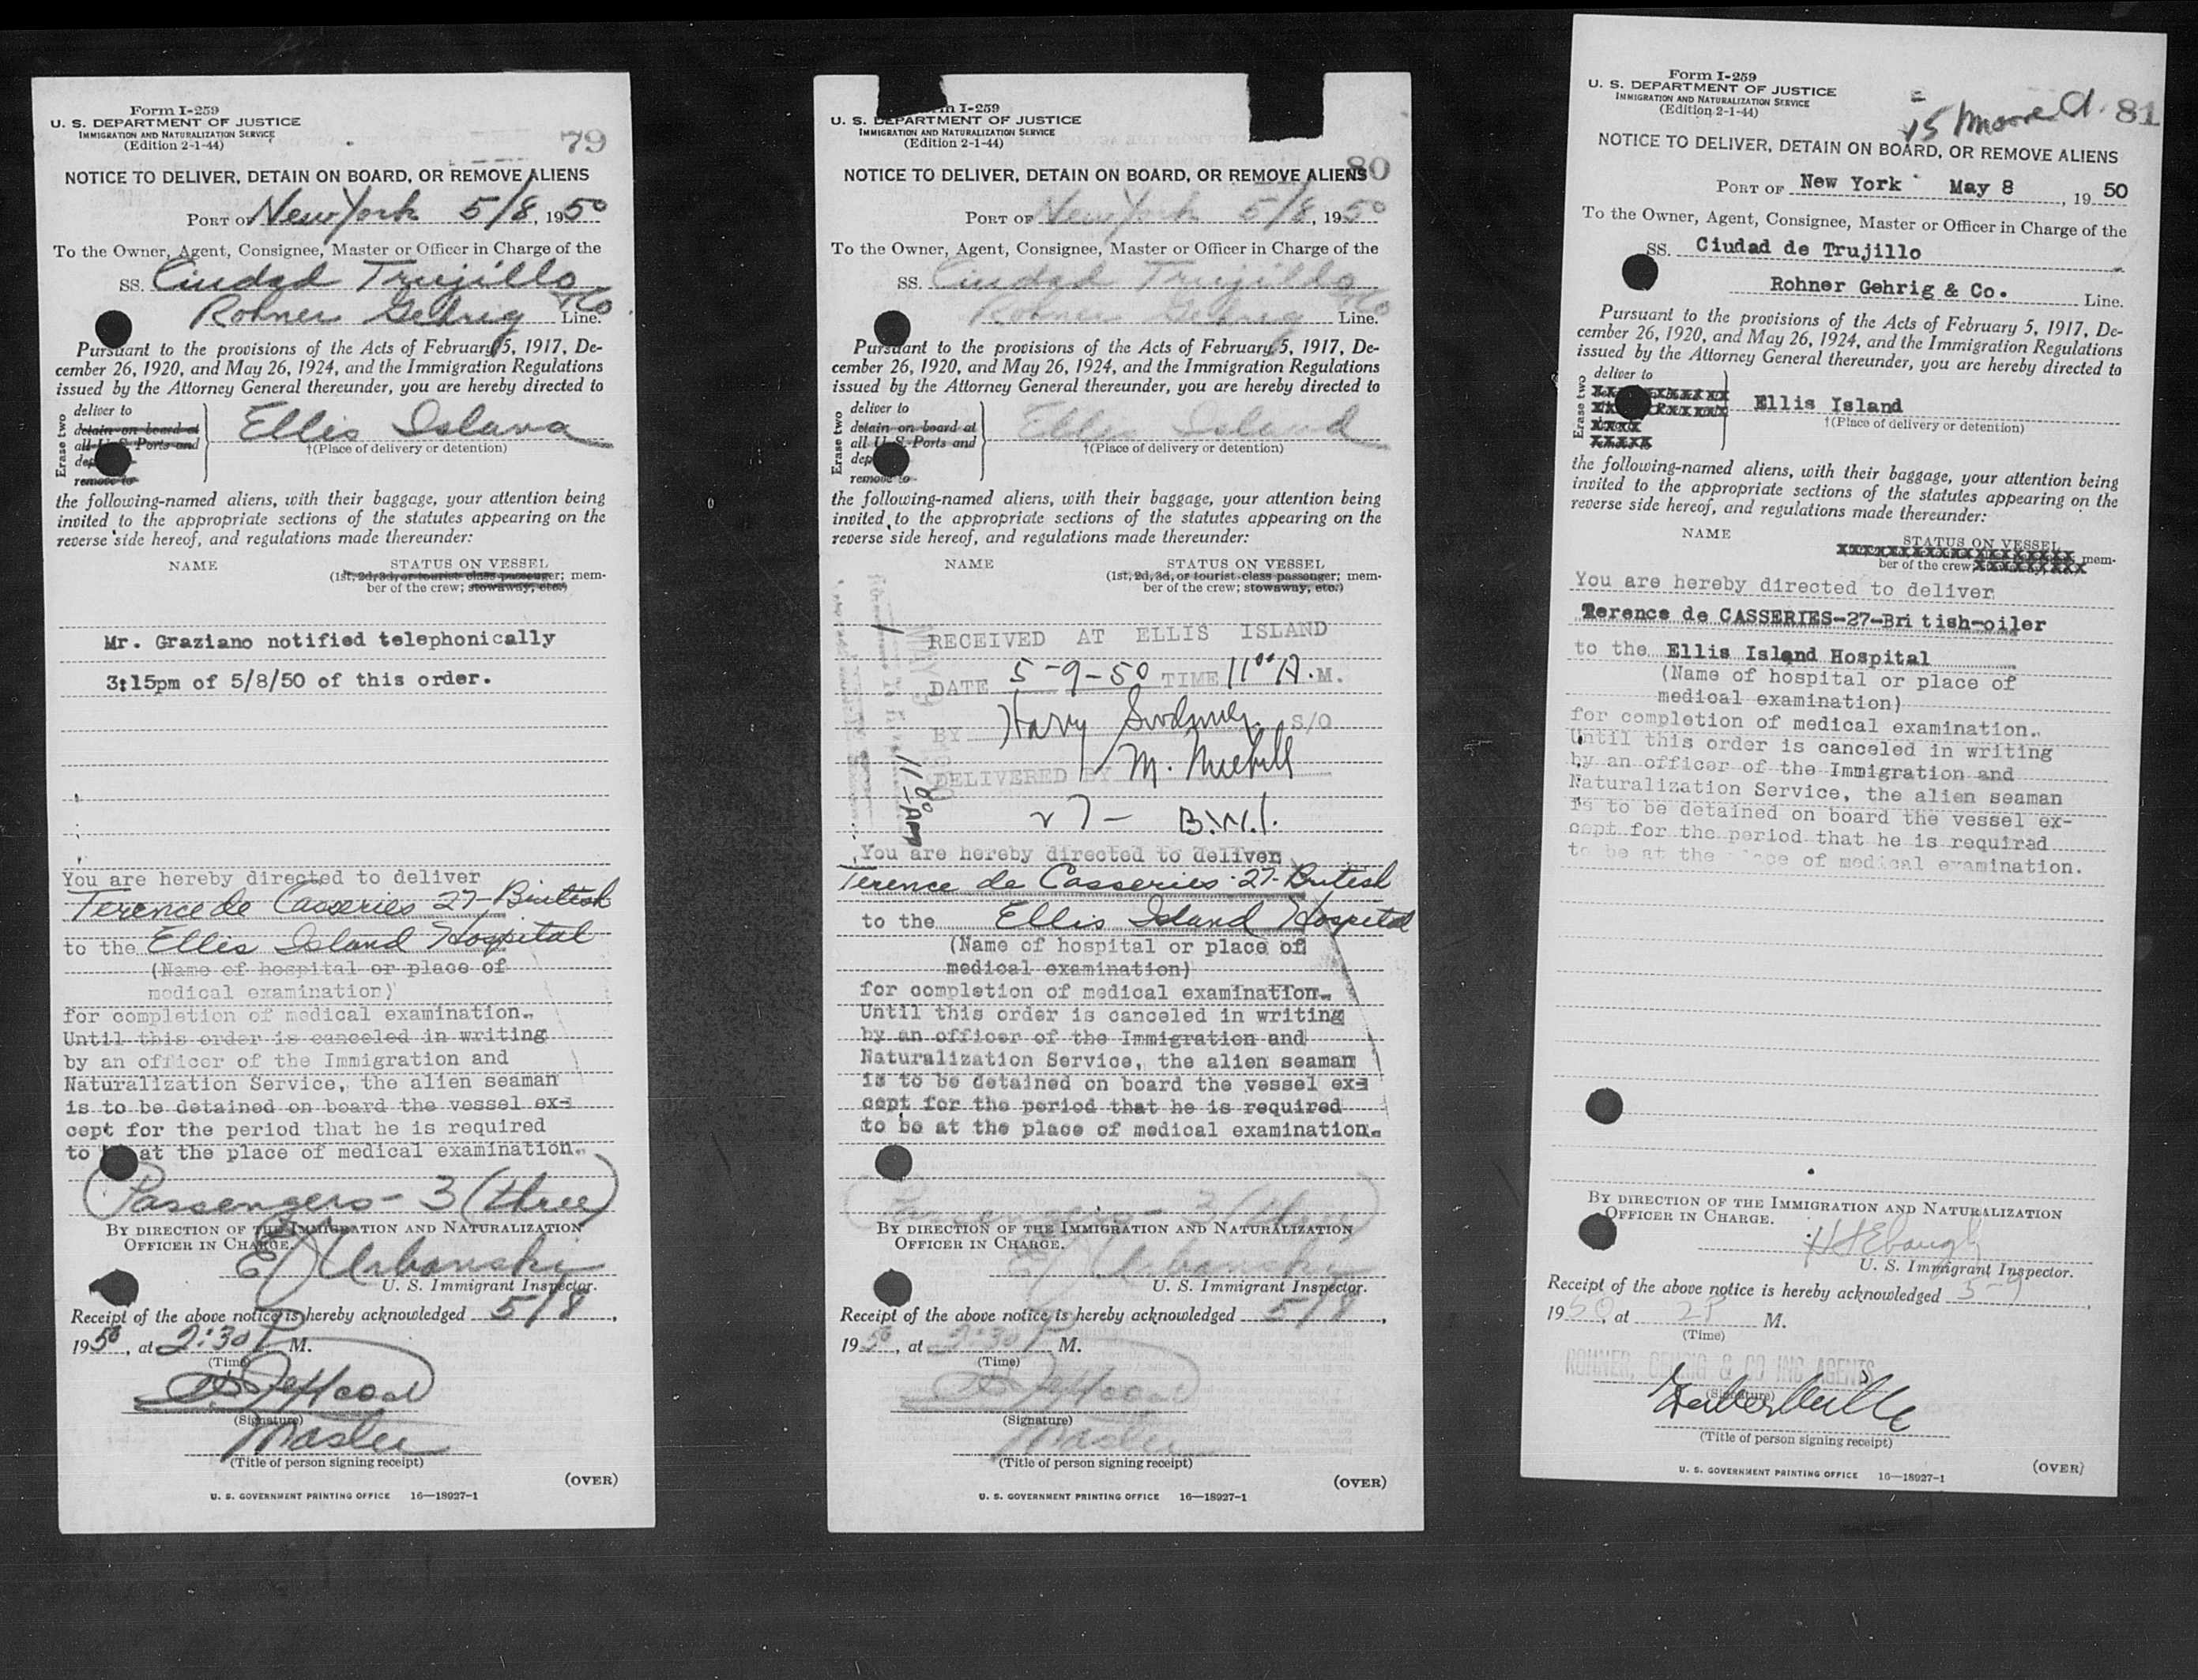 Form I-259
U. S. DEPARTMENT OF JUSTICE
IMMIGRATION AND NATURALIZATION SERVICE
(Edition 2-1-44)
79
NOTICE TO DELIVER, DETAIN ON BOARD, OR REMOVE ALIENS
PORT OF New York 5/8, 1950
To the Owner, Agent, Consignee, Master or Officer in Charge of the
SS. Ciudad Trujillo
Rohner Gehrig & Co Line.
Pursuant to the provisions of the Acts of February 5, 1917, De-
cember 26, 1920, and May 26, 1924, and the Immigration Regulations
issued by the Attorney General thereunder, you are hereby directed to
Erase two
deliver to
detain on board at
all U. S. Ports and
remove to
Ellis Island
†(Place of delivery or detention)
the following-named aliens, with their baggage, your attention being
invited to the appropriate sections of the statutes appearing on the
reverse side hereof, and regulations made thereunder:
NAME STATUS ON VESSEL
(1st, 2d, 3d, or tourist class passenger; mem-
ber of the crew; stowaway, etc.)
Mr. Graziano notified telephonically
3:15pm of 5/8/50 of this order.
You are hereby directed to deliver
Terence de Casseries 27-British
to the Ellis Island Hospital
(Name of hospital or place of
medical examination)
for completion of medical examination.
Until this order is canceled in writing
by an officer of the Immigration and
Naturalization Service, the alien seaman
is to be detained on board the vessel ex-
cept for the period that he is required
to at the place of medical examination.
(Passengers - 3 (three)
BY DIRECTION OF THE IMMIGRATION AND NATURALIZATION
OFFICER IN CHARGE.
E J Urbanski
U. S. Immigrant Inspector.
Receipt of the above notice is hereby acknowledged 5/8,
1950, at 2:30 P M.
(Time)
(Signature)
Master
(Title of person signing receipt)
(OVER)
U. S. GOVERNMENT PRINTING OFFICE 16—18927-1
I-259
U. S. DEPARTMENT OF JUSTICE
IMMIGRATION AND NATURALIZATION SERVICE
(Edition 2-1-44)
80
NOTICE TO DELIVER, DETAIN ON BOARD, OR REMOVE ALIENS
PORT OF New York 5/8, 1950
To the Owner, Agent, Consignee, Master or Officer in Charge of the
SS. Ciudad Trujillo
Rohner Gehrig & Co Line.
Pursuant to the provisions of the Acts of February 5, 1917, De-
cember 26, 1920, and May 26, 1924, and the Immigration Regulations
issued by the Attorney General thereunder, you are hereby directed to
Erase two
deliver to
detain on board at
all U. S. Ports and
remove to
Ellis Island
†(Place of delivery or detention)
the following-named aliens, with their baggage, your attention being
invited to the appropriate sections of the statutes appearing on the
reverse side hereof, and regulations made thereunder:
NAME STATUS ON VESSEL
(1st, 2d, 3d, or tourist class passenger; mem-
ber of the crew; stowaway, etc.)
RECEIVED AT ELLIS ISLAND
DATE 5-9-50 TIME 11 00 A. M.
BY Harry S/O
DELIVERED BY M.
27- B.W.I.
11 00 AM
You are hereby directed to deliver
Terence de Casseries 27-British
to the Ellis Island Hospital
(Name of hospital or place of
medical examination)
for completion of medical examination.
Until this order is canceled in writing
by an officer of the Immigration and
Naturalization Service, the alien seaman
is to be detained on board the vessel ex-
cept for the period that he is required
to be at the place of medical examination.
(Passengers - 3 (three)
BY DIRECTION OF THE IMMIGRATION AND NATURALIZATION
OFFICER IN CHARGE.
E J Urbanski
U. S. Immigrant Inspector.
Receipt of the above notice is hereby acknowledged 5/8,
1950, at 2:30 P M.
(Time)
(Signature)
Master
(Title of person signing receipt)
(OVER)
U. S. GOVERNMENT PRINTING OFFICE 16—18927-1
Form I-259
U. S. DEPARTMENT OF JUSTICE
IMMIGRATION AND NATURALIZATION SERVICE
(Edition 2-1-44)
15 Moore St. 81
NOTICE TO DELIVER, DETAIN ON BOARD, OR REMOVE ALIENS
PORT OF New York May 8, 1950
To the Owner, Agent, Consignee, Master or Officer in Charge of the
SS. Ciudad de Trujillo
Rohner Gehrig & Co. Line.
Pursuant to the provisions of the Acts of February 5, 1917, De-
cember 26, 1920, and May 26, 1924, and the Immigration Regulations
issued by the Attorney General thereunder, you are hereby directed to
Erase two
deliver to
Ellis Island
†(Place of delivery or detention)
the following-named aliens, with their baggage, your attention being
invited to the appropriate sections of the statutes appearing on the
reverse side hereof, and regulations made thereunder:
NAME STATUS ON VESSEL
mem-
ber of the crew;
You are hereby directed to deliver
Terence de CASSERIES-27-British-oiler
to the Ellis Island Hospital
(Name of hospital or place of
medical examination)
for completion of medical examination.
Until this order is canceled in writing
by an officer of the Immigration and
Naturalization Service, the alien seaman
is to be detained on board the vessel ex-
cept for the period that he is required
to be at the place of medical examination.
BY DIRECTION OF THE IMMIGRATION AND NATURALIZATION
OFFICER IN CHARGE.
H H Ebaugh
U. S. Immigrant Inspector.
Receipt of the above notice is hereby acknowledged 5-9,
1950, at 2 P M.
(Time)
ROHNER, GEHRIG & CO INC AGENTS
(Signature)
(Title of person signing receipt)
(OVER)
U. S. GOVERNMENT PRINTING OFFICE 16—18927-1